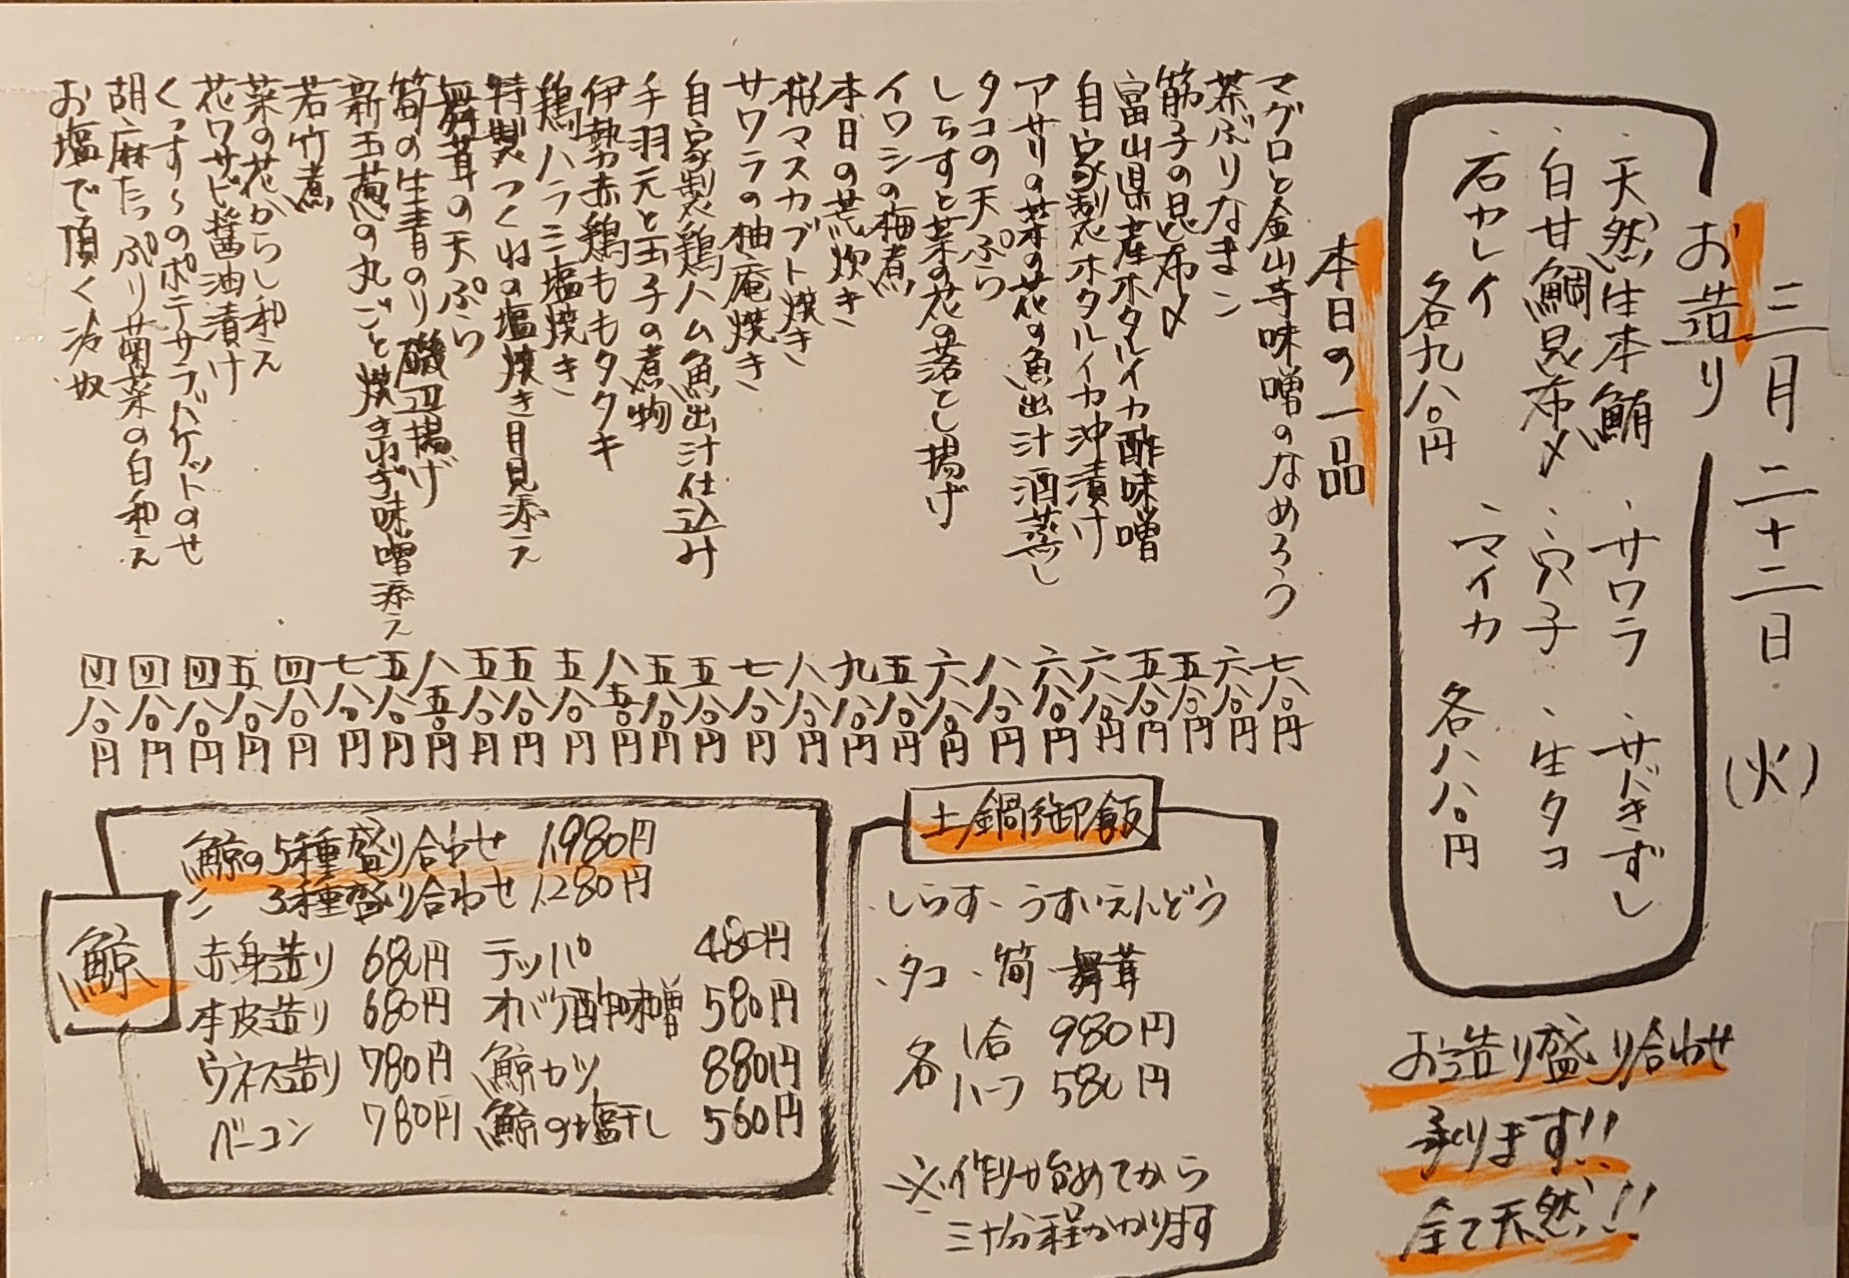 三月二十二日(火)
お造り
・天然生本鮪 ・サワラ ・サバきずし
・白甘鯛昆布〆 ・穴子 ・生タコ
・石カレイ ・マイカ
各九八〇円 各八八〇円
お造り盛り合わせ
承ります!!
全て天然!!
本日の一品
マグロと金山寺味噌のなめろう 七八〇円
茶ぶりなまこ 六八〇円
筋子の昆布〆 五八〇円
富山県産ホタルイカ酢味噌 五八〇円
自家製ホタルイカ沖漬け 六八〇円
アサリの菜の花の魚出汁酒蒸し 六八〇円
タコの天ぷら 八八〇円
しらすと菜の花の落とし揚げ 六八〇円
イワシの梅煮 五八〇円
本日の荒炊き 九八〇円
桜マスカブト焼き 八八〇円
サワラの柚庵焼き 七八〇円
自家製鶏ハム魚出汁仕込み 五八〇円
手羽元と玉子の煮物 五八〇円
伊勢赤鶏ももタタキ 八五〇円
鶏ハラミ塩焼き 五八〇円
特製つくねの塩焼き月見添え 五八〇円
舞茸の天ぷら 五八〇円
筍の生青のり磯辺揚げ 八五〇円
新玉葱の丸ごと焼きねぎ味噌添え 五八〇円
若竹煮 七八〇円
菜の花からし和え 四八〇円
花ワサビ醤油漬け 五八〇円
くっす〜のポテサラバケットのせ 四八〇円
胡麻たっぷり菊菜の白和え 四八〇円
お塩で頂く冷奴 四八〇円
土鍋御飯
・しらす・うすいえんどう
・タコ・筍・舞茸
各 1合 980円
ハーフ 580円
※作り始めてから
三十分程かかります
鯨
鯨の5種盛り合わせ 1,980円
〃 3種盛り合わせ 1,280円
赤身造り 680円 テッパ 480円
本皮造り 680円 オバケ酢味噌 580円
ウネス造り 780円 鯨カツ 880円
ベーコン 780円 鯨の塩干し 560円